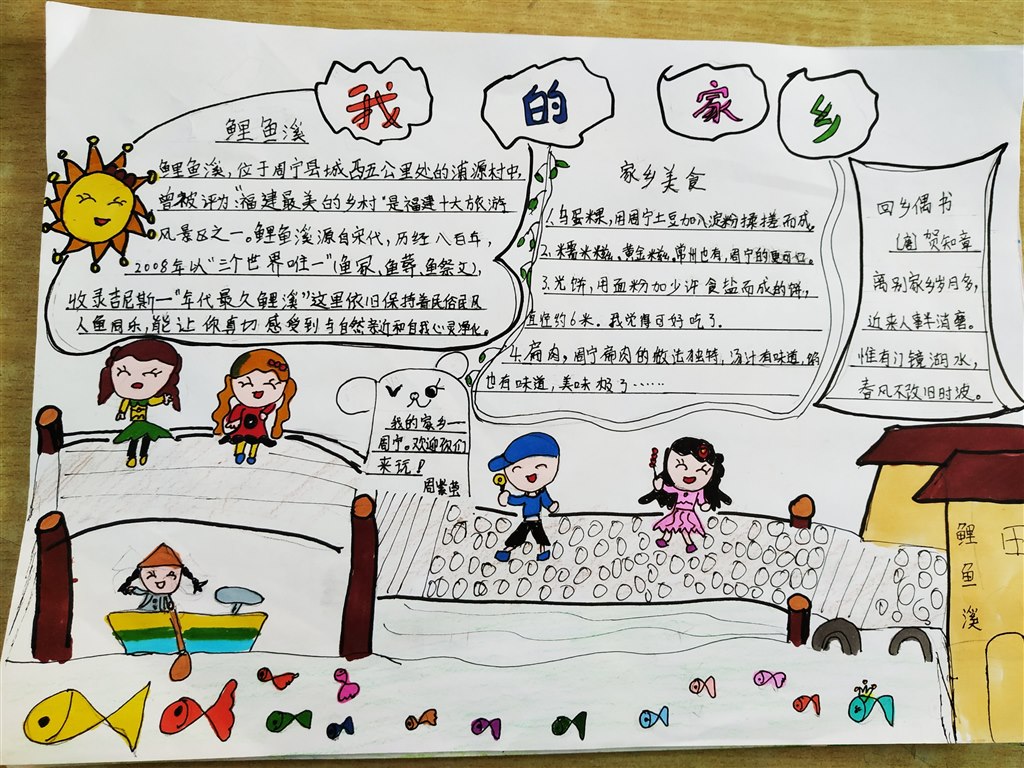 我的家乡
鲤鱼溪
鲤鱼溪,位于周宁县城西五公里处的浦源村中,
曾被评为"福建最美的乡村"是福建十大旅游
风景区之一。鲤鱼溪源自宋代,历经八百年,
2008年以"三个世界唯一"(鱼冢、鱼葬、鱼祭文),
收录吉尼斯—"年代最久鲤鱼溪"这里依旧保持着民俗民风
人鱼同乐,能让你真切感受到与自然亲近和自我心灵净化。
家乡美食
1.乌蛋粿,用周宁土豆加入淀粉揉搓而成。
2.米番米米糍。黄金米糍。常州也有,周宁的更可口。
3.光饼,用面粉加少许食盐而成的饼,
直径约6米。我觉得可好吃了。
4.扁肉,周宁扁肉的做法独特,汤汁有味道,馅
也有味道,美味极了……
回乡偶书
贺知章
离别家乡岁月多,
近来人事半消磨。
惟有门镜湖水,
春风不改旧时波。
我的家乡—
周宁。欢迎你们
来玩!
周紫萱
鲤鱼溪